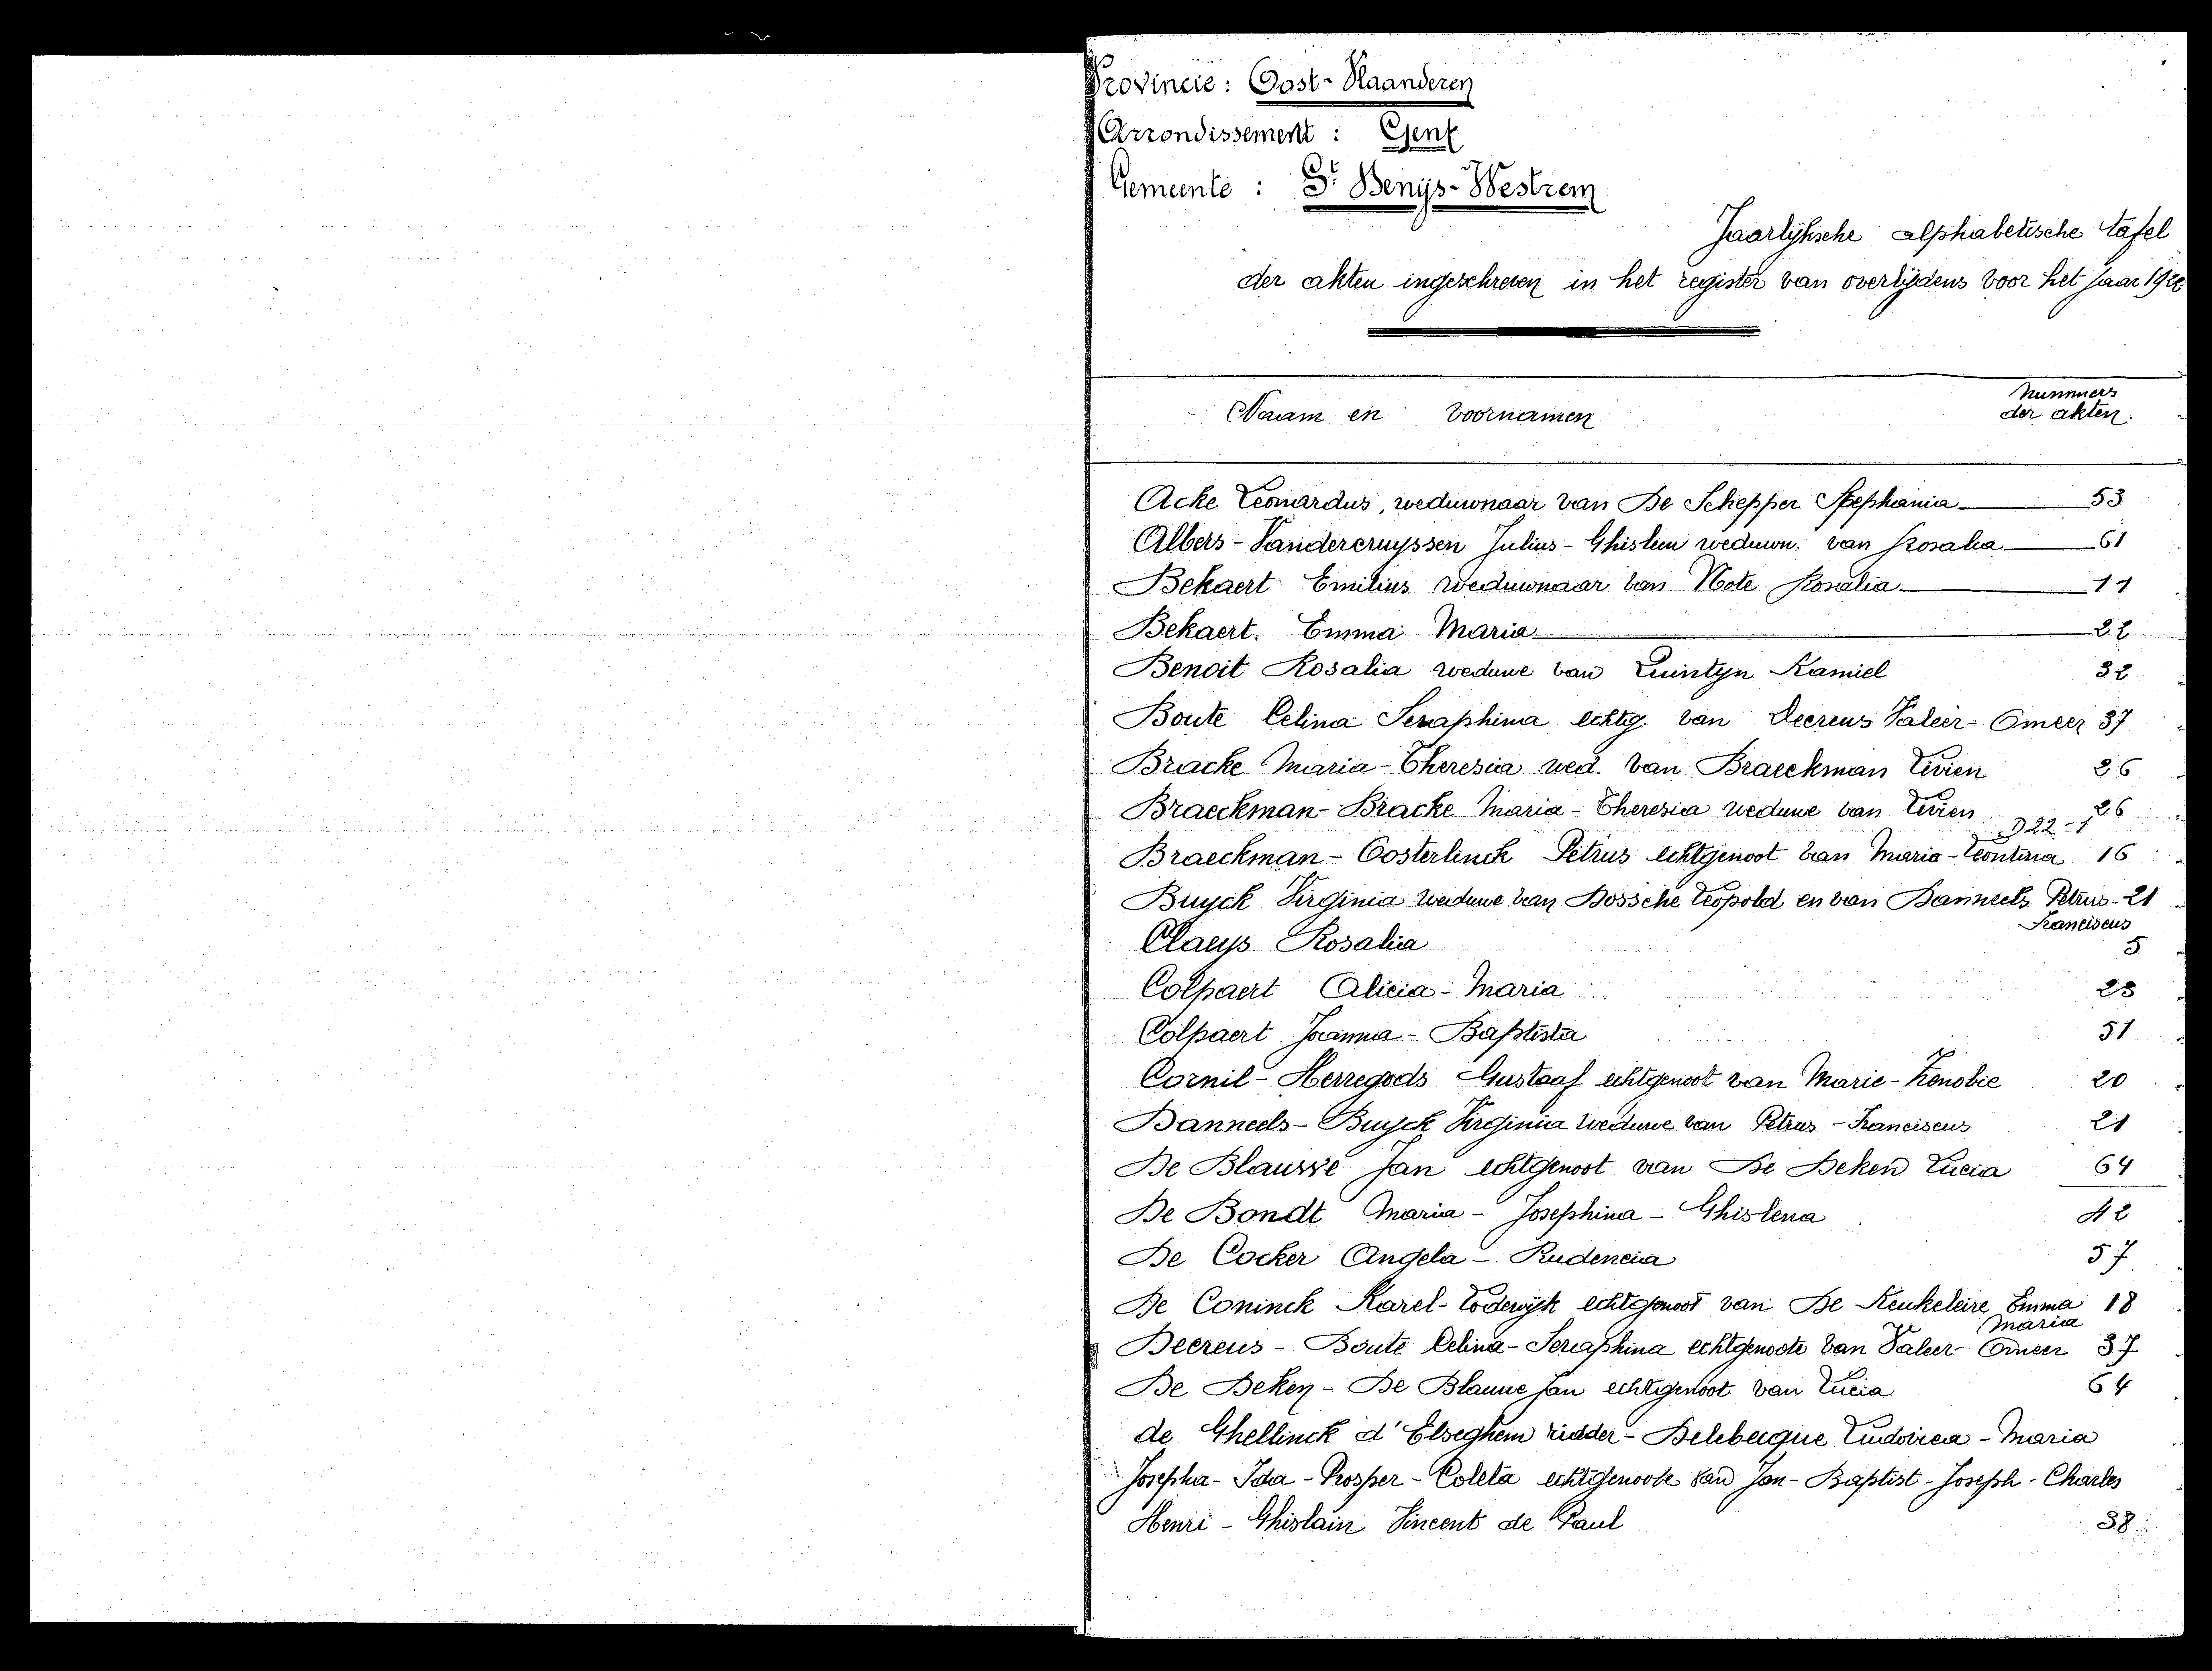 Provincie : Oost-Vlaanderen
Arrondissement : Gent
Gemeente : St Denijs-Westrem
Jaarlijksche alphabetische tafel
der akten ingeschreven in het register van overlijdens voor het jaar 192
Naam en voornamen
Nummers
der akten.
Acke Leonardus, weduwnaar van De Schepper Stephania 53
Albers - Vandercruyssen Julius - Ghislen weduwn. van Rosalia 61
Bekaert Emilius weduwnaar van Note Rosalia 11
Bekaert. Emma Maria 22
Benoit Rosalia weduwe van Quintyn Kamiel 32
Boute Celina Seraphina echtg. van Deereus Valeer - Omeer 37
Bracke Maria - Theresia wed. van Braeckman Livien 26
Braeckman - Bracke Maria - Theresia weduwe van Livien 26
D 22 - 1
Braeckman - Oosterlinck Petrus echtgenoot van Maria - Leontina 16
Buyck Virginia weduwe van Bossche Leopold en van Danneels Petrus - 21
Franciscus
Claeys Rosalia 5
Colpaert Alicia - Maria 23
Colpaert Joanna - Baptista 51
Cornil - Herregods Gustaaf echtgenoot van Marie - Zenobie 20
Danneels - Buyck Virginia weduwe van Petrus - Franciscus 21
De Blauwe Jan echtgenoot van De Deken Lucia 64
De Bondt Maria - Josephina - Ghislena 42
De Cocker Angela - Prudencia 57
De Coninck Karel - Lodewijk echtgenoot van De Keukeleire Emma 18
Maria
Deereus - Boute Celina - Seraphina echtgenoote van Valeer - Omeer 37
De Deken - De Blauwe Jan echtgenoot van Lucia 64
de Ghellinck d'Elseghem ridder - Delebecque Ludovica - Maria
Josepha - Ida - Prosper - Coleta echtgenoote van Jan - Baptist - Joseph - Charles
Henri - Ghislain Vincent de Paul 38